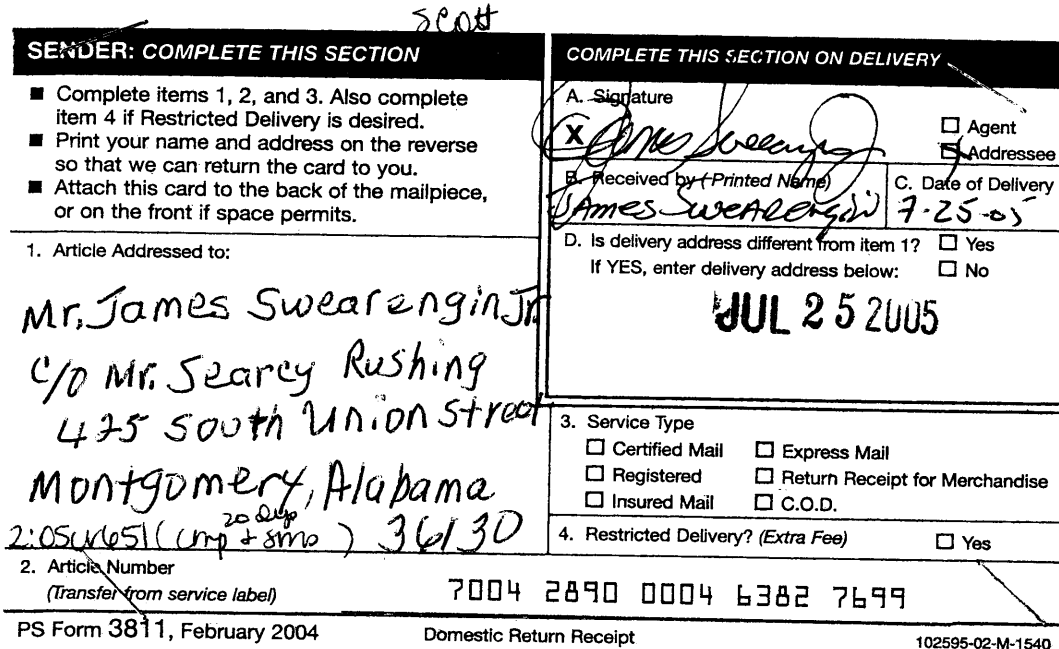 Scott
SENDER: COMPLETE THIS SECTION
■ Complete items 1, 2, and 3. Also complete
item 4 if Restricted Delivery is desired.
■ Print your name and address on the reverse
so that we can return the card to you.
■ Attach this card to the back of the mailpiece,
or on the front if space permits.
1. Article Addressed to:
Mr. James Swearengin Jr.
c/o Mr. Searcy Rushing
425 South Union Street
Montgomery, Alabama
20 days
2:05cv651 (cmp & smo) 36130
2. Article Number
(Transfer from service label)
7004 2890 0004 6382 7699
COMPLETE THIS SECTION ON DELIVERY
A. Signature
X James Swearengin
☐ Agent
☒ Addressee
B. Received by (Printed Name)
James Swearengin
C. Date of Delivery
7-25-05
D. Is delivery address different from item 1? ☐ Yes
If YES, enter delivery address below: ☐ No
JUL 25 2005
3. Service Type
☐ Certified Mail ☐ Express Mail
☐ Registered ☐ Return Receipt for Merchandise
☐ Insured Mail ☐ C.O.D.
4. Restricted Delivery? (Extra Fee) ☐ Yes
PS Form 3811, February 2004 Domestic Return Receipt 102595-02-M-1540